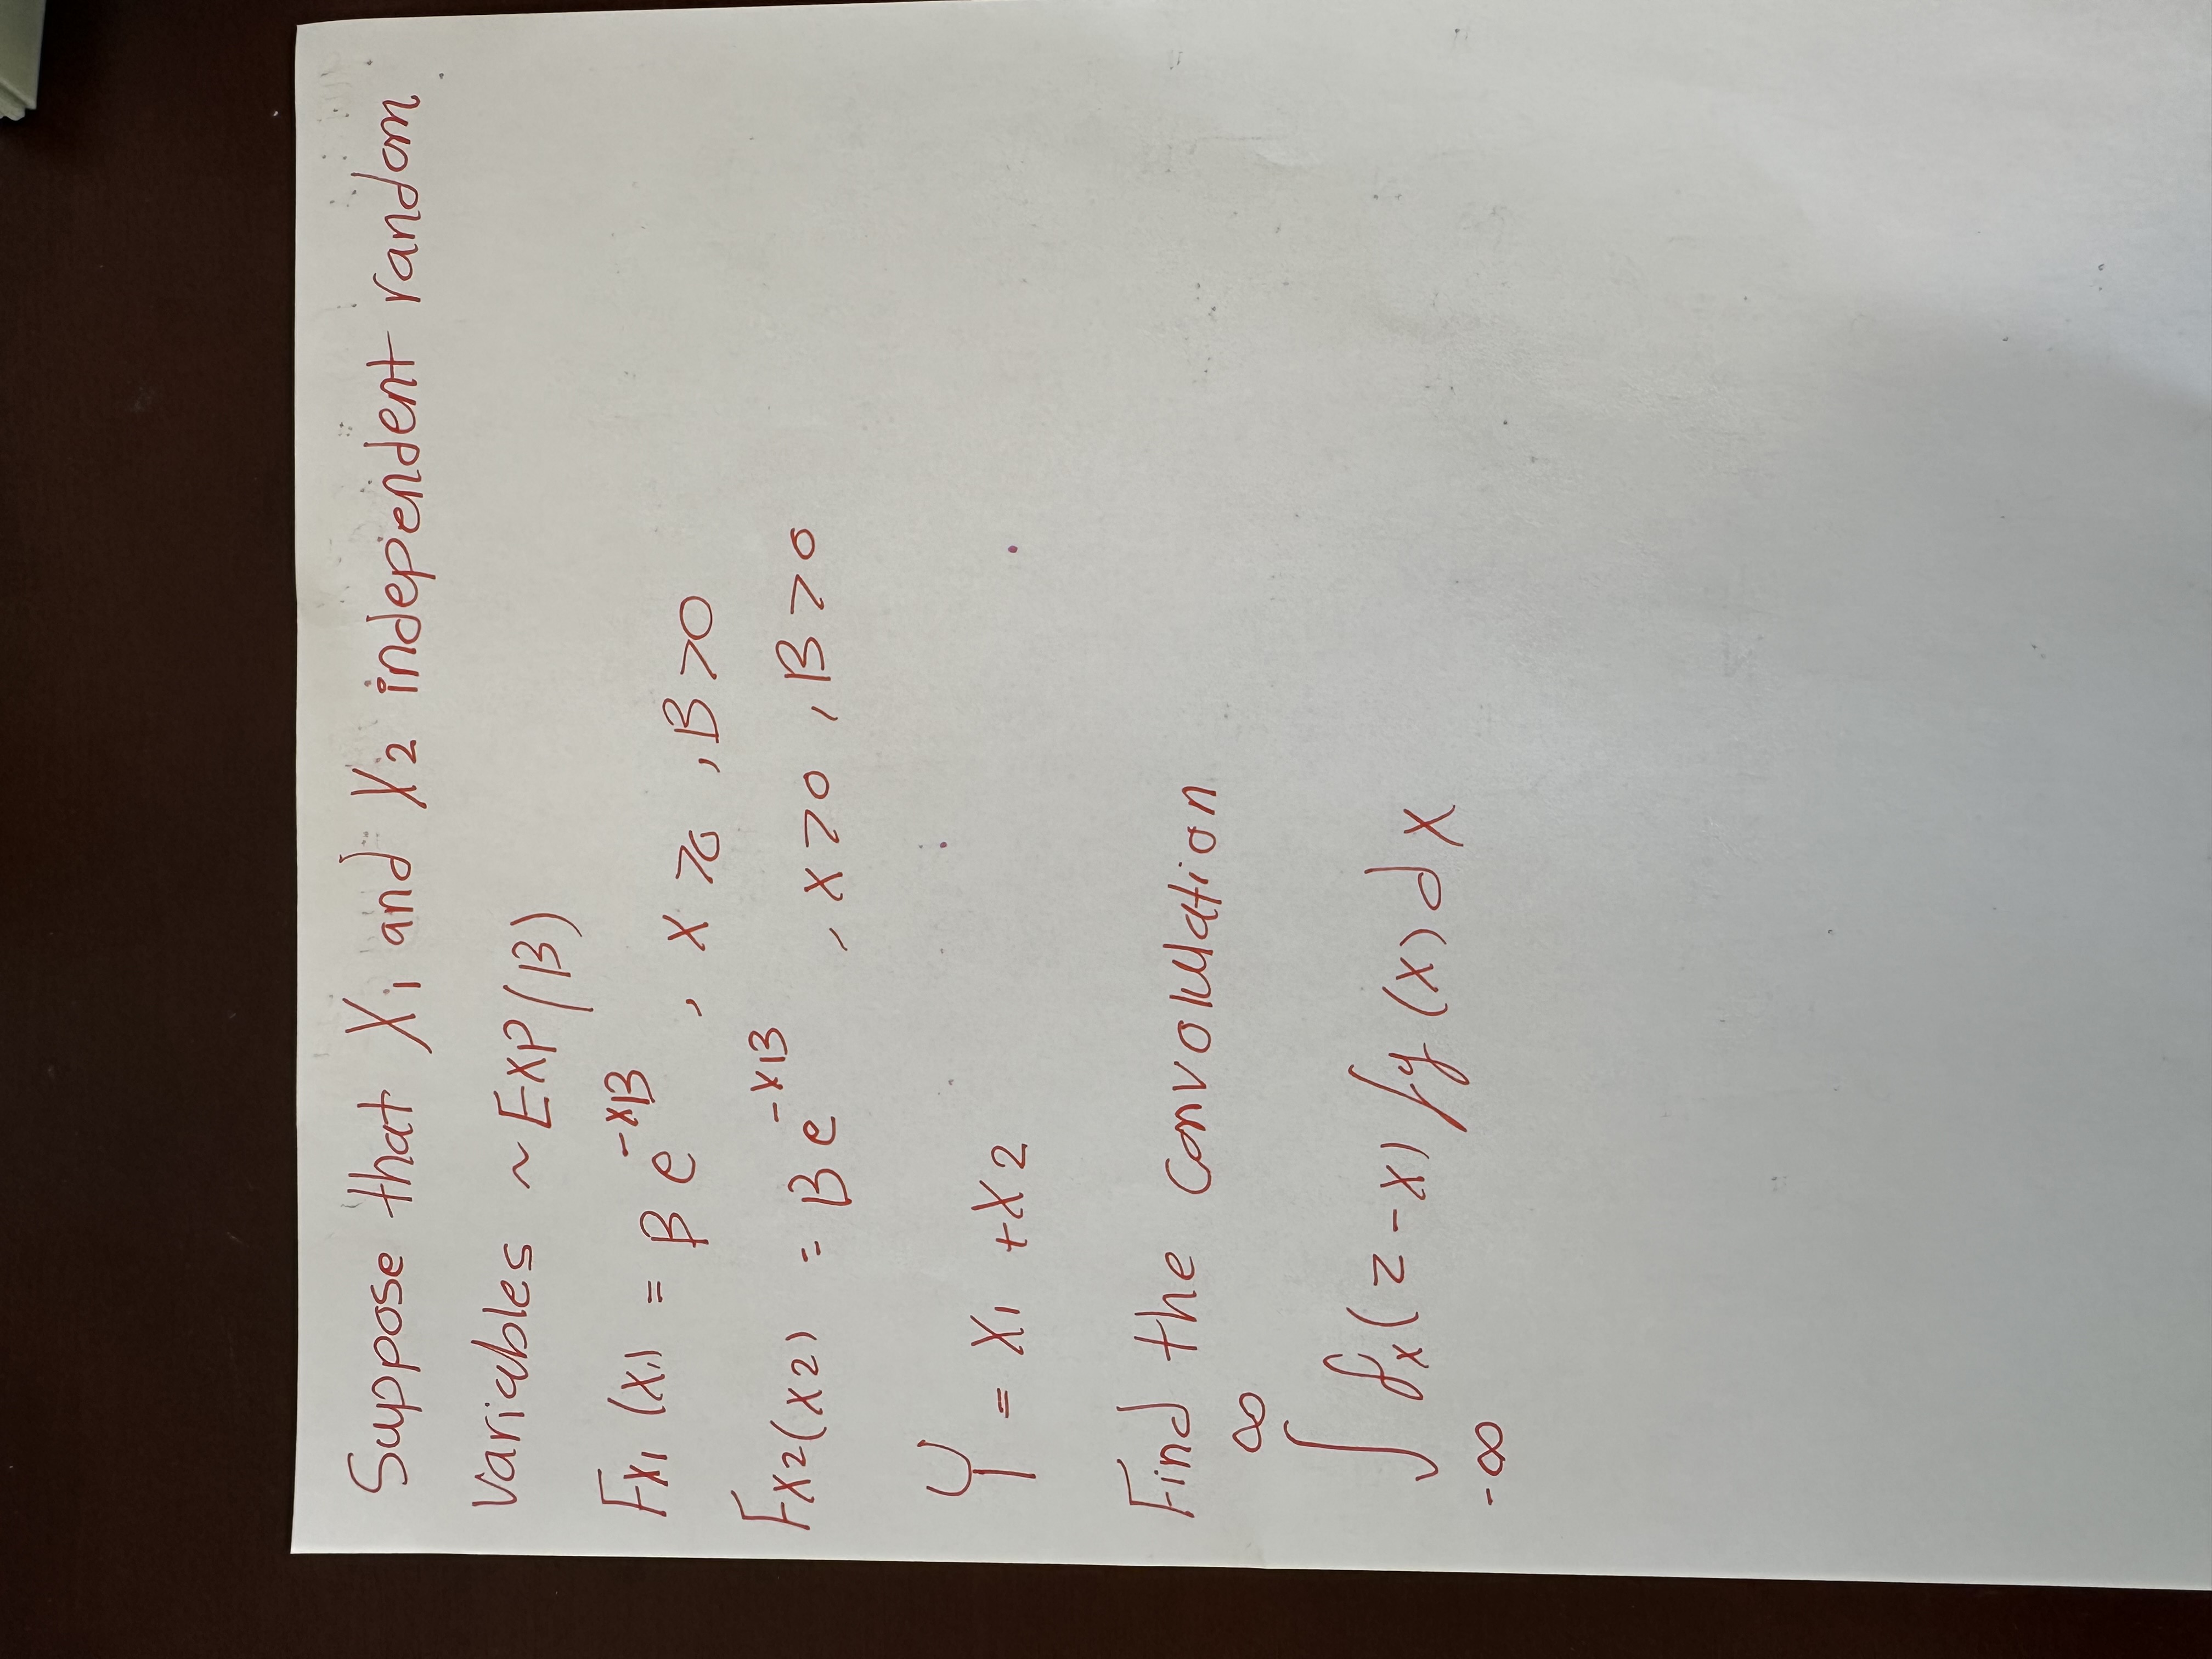 Suppose that X1 and X2 independent random
variables ~ Exp(β)
Fx1(x1) = β e^-xβ , x ≥ 0 , β > 0
Fx2(x2) = β e^-xβ , x ≥ 0 , β > 0
Y = X1 + X2
Find the convolution
∫_-∞^∞ fx(z-x) fy(x) dx